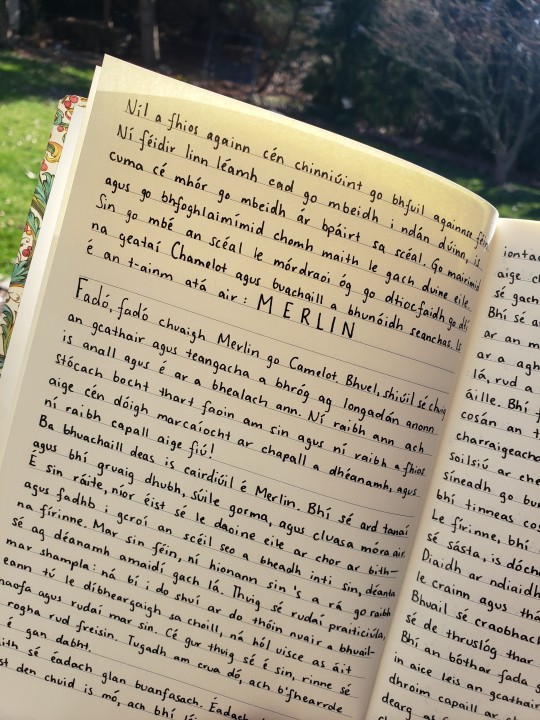 Níl a fhios againn cén chinniúint go bhfuil againne féin,
Ní féidir linn léamh cad go mbeidh i ndán dúinn, is
cuma cé mhór go mbeidh ár bpáirt sa scéal. Go mairimid
agus go bhfoghlaimímid chomh maith le gach duine eile.
Sin go mbé an scéal le mórdraoi óg go dtiocfaidh go dtí
na geataí Chamelot agus buachaill a bhunóidh seanchas. Is
é an t-ainm atá air: MERLIN
Fadó, fadó chuaigh Merlin go Camelot. Bhuel, shiúil sé chuig
an gcathair agus teangacha a bhróg ag longadán anonn
is anall agus é ar a bhealach ann. Ní raibh ann ach
stócach bocht thart faoin am sin agus ní raibh a fhios
aige cén dóigh marcaíocht ar chapall a dhéanamh, agus
ní raibh capall aige fiú!
Ba bhuachaill deas is cairdiúil é Merlin. Bhí sé ard tanaí
agus bhí gruaig dhubh, súile gorma, agus cluasa móra air.
É sin ráite, níor éist sé le daoine eile ar chor ar bith—
agus fadhb i gcroí an scéil seo a bheadh inti sin, déanta
na fírinne. Mar sin féin, ní hionann sin 's a rá go raibh
sé ag déanamh amaidí gach lá. Thuig sé rudaí praiticiúla,
mar shampla: ná bí i do shuí ar do thóin nuair a bhuail-
eann tú le díbheargaigh sa choill, ná hól uisce as áit
naofa agus rudaí mar sin. Cé gur thuig sé é sin, rinne sé
rogha rud freisin. Tugadh am crua dó, ach b'fhearrde
é gan dabht.
sé éadach glan buanfasach.
den chuid is mó, ach bhí
iontac
aige c
sé gach
Bhí sé a
ar an m
ar a agh
lá, rud a
áille. Bhí f
cosán an t
charraigeach
soilsiú ar che
síneadh go bu
bhí tinneas cos
Le fírinne, bhí
sé sásta, is dóch
Diaidh ar ndiaidh
le crainn agus thá
Bhuail sé craobhach
sé de thruslóg thar
Bhí an bóthar fada
in aice leis an gcathair
dhroim capaill ar
dearg